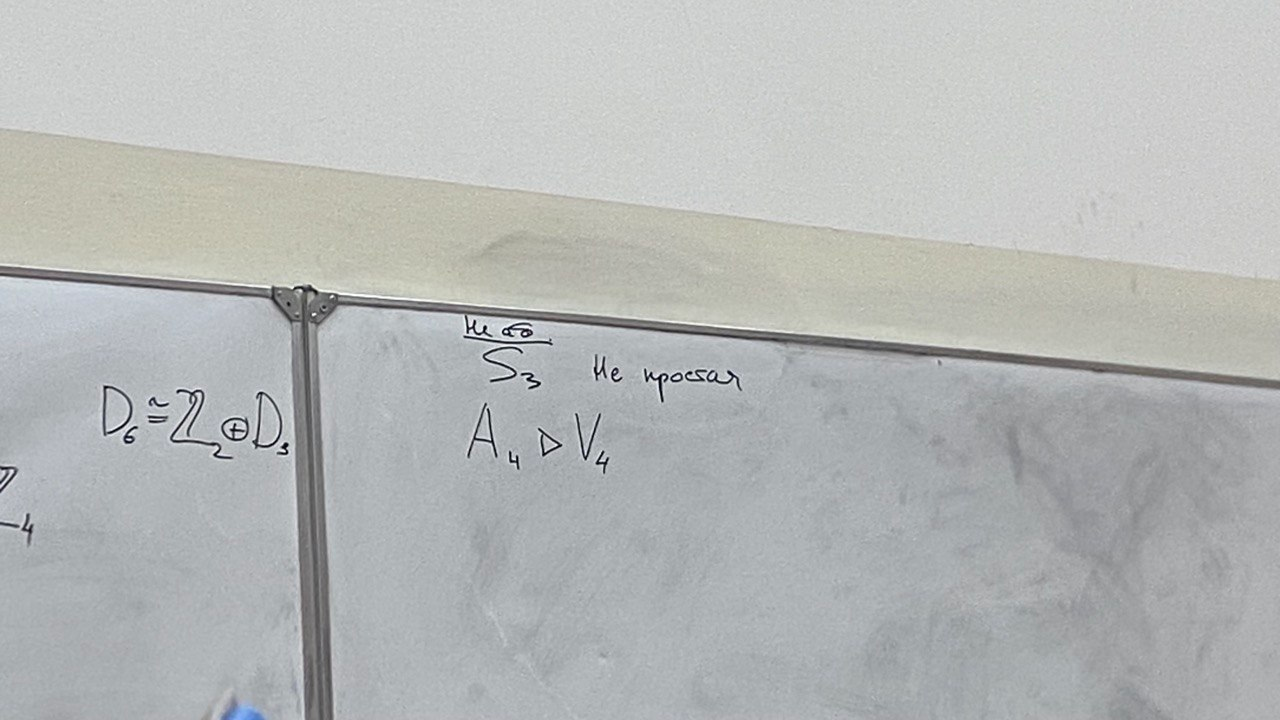 D₆ ≅ ℤ₂ ⊕ D₃
4
Не аб.
S₃ Не простая
A₄ ▷ V₄